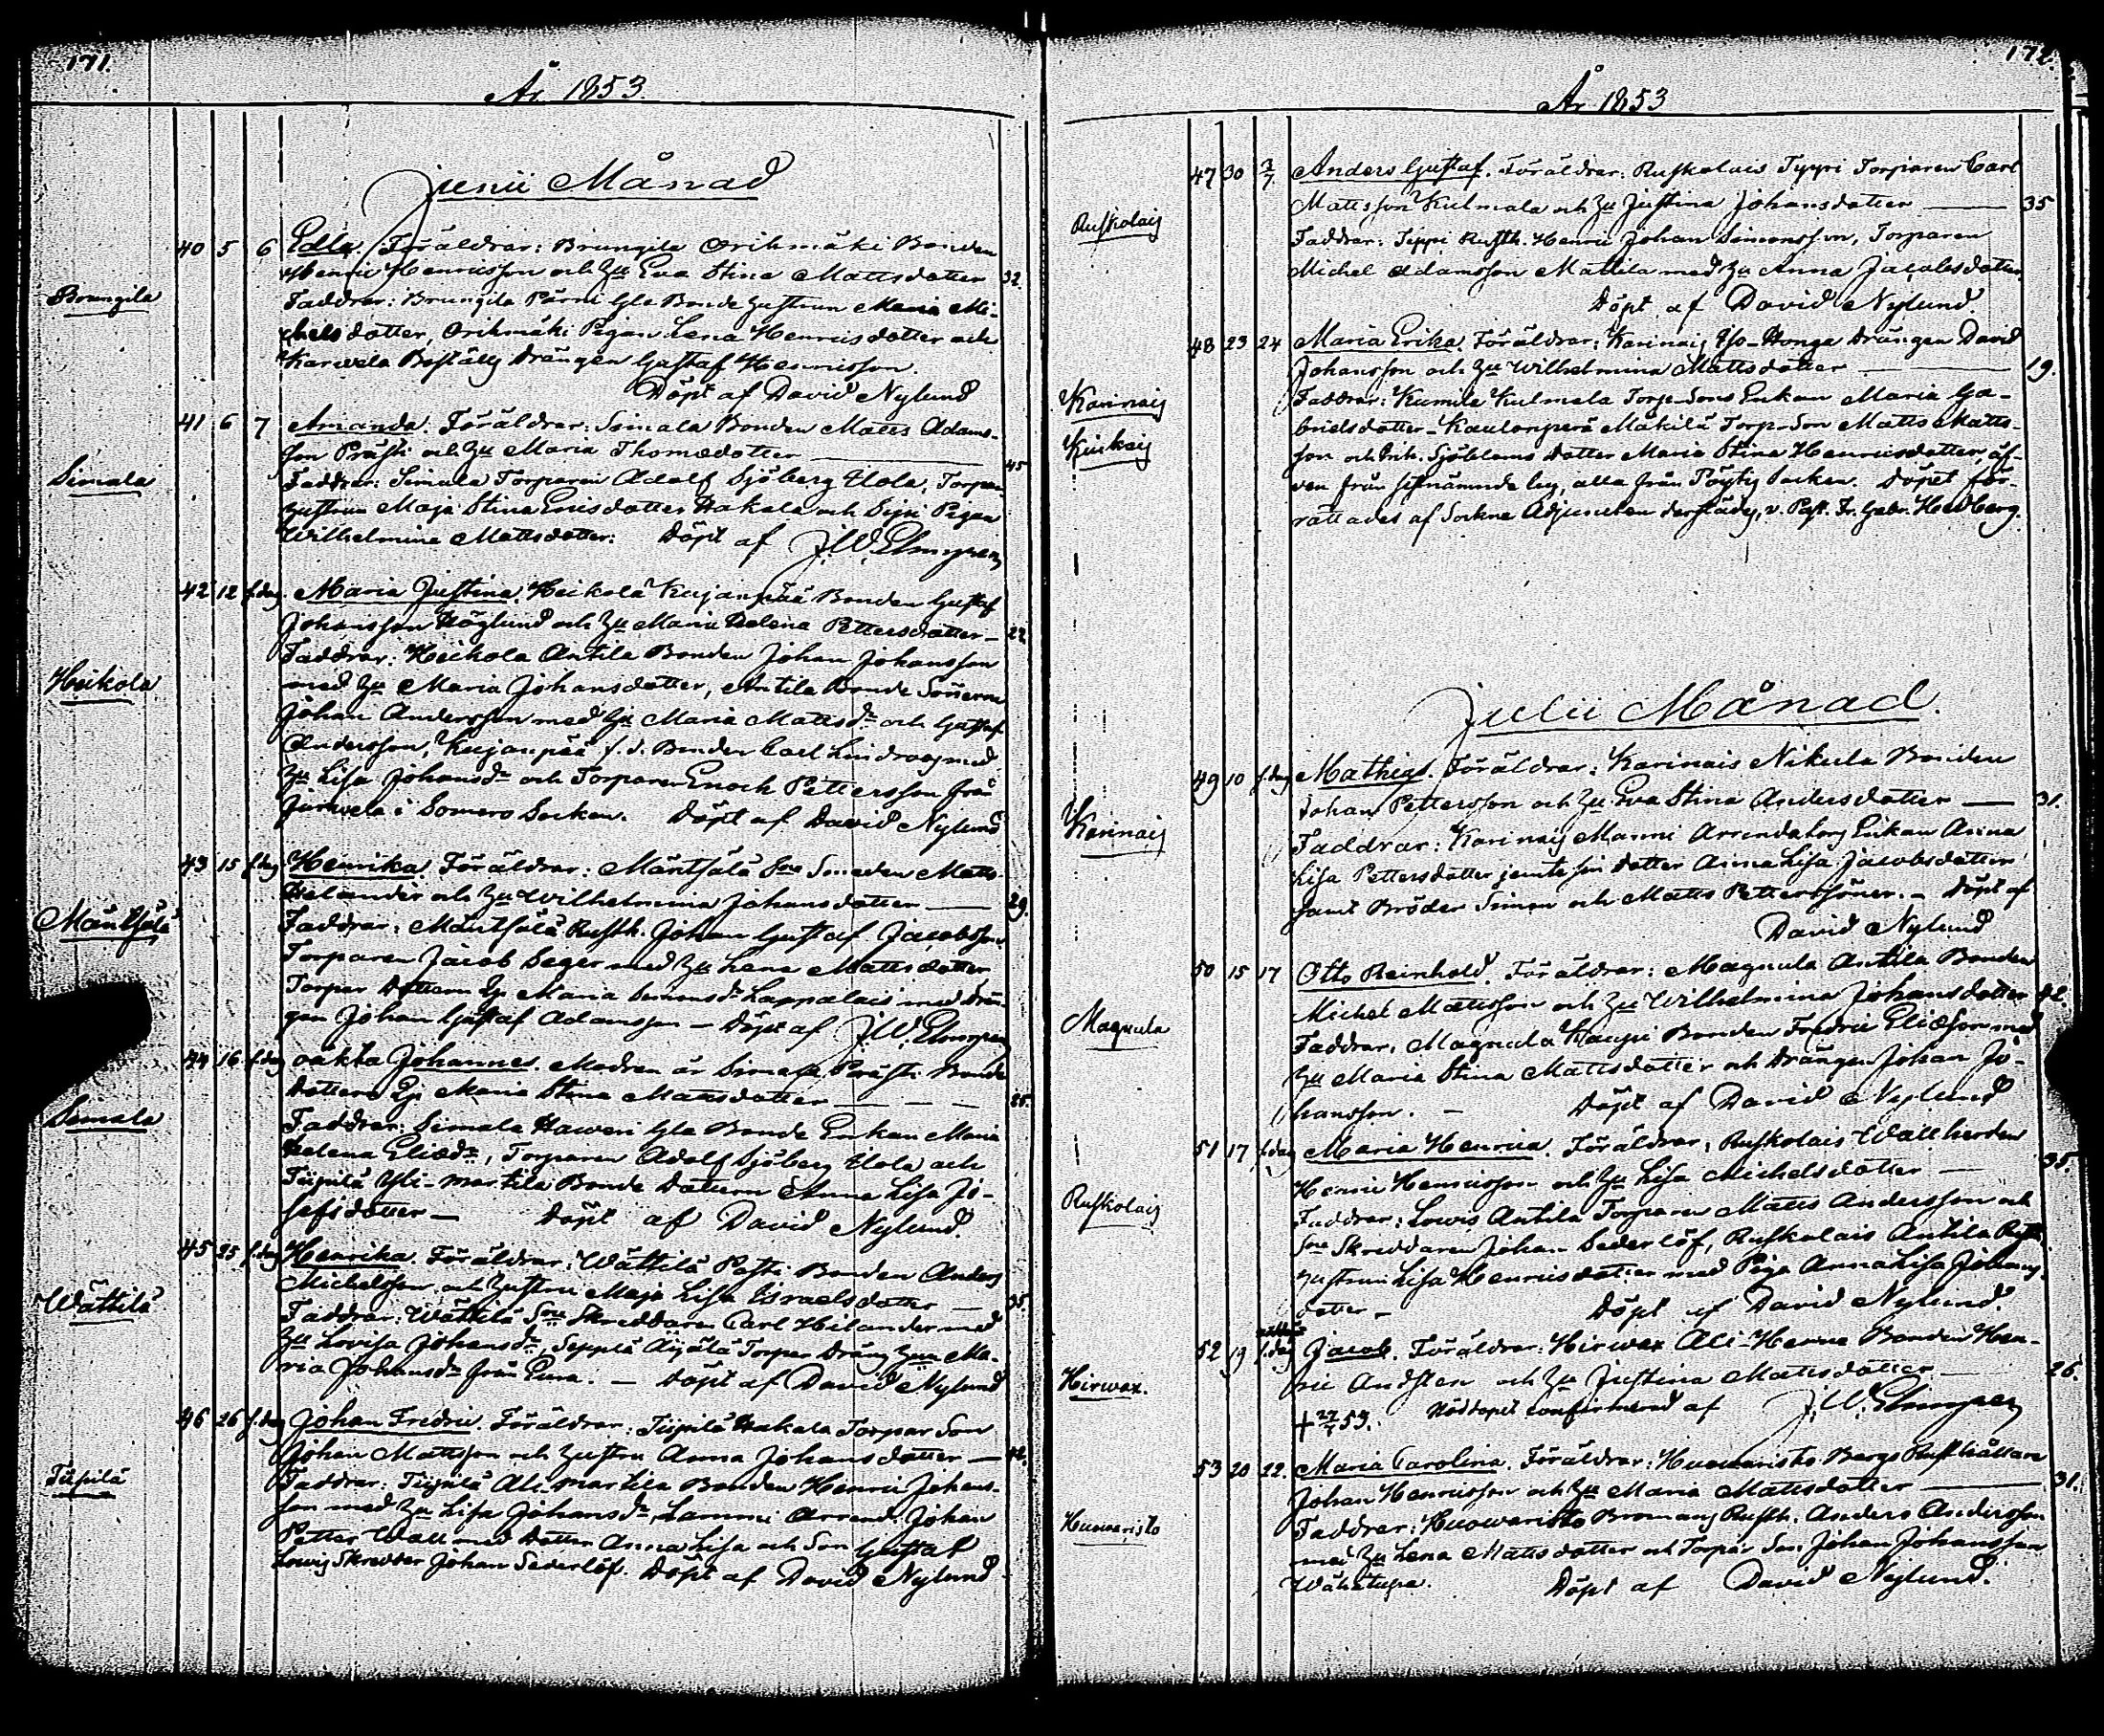 171.
År 1853.
Junii Månad
Brungila
40 5 6 Edla. Föräldrar: Brungila Orihmäki Bonden
Henric Henricsson och Hu Eva Stina Mattsdotter 32.
Faddrar: Brungila Pärni Gle Bonde hustrun Maria Mi-
chelsdotter, Orihmäki Pigan Lena Henricsdotter och
Karvela Boställs Drängen Gustaf Henricsson.
Döpt af David Nylund
Simala
41 6 7 Amanda. Föräldrar: Simala Bonden Matts Adams-
son Prästi och Hu Maria Thomædotter 45
Faddrar: Simala Torparen Adolf Sjöberg Hola, Torpare-
hustrun Maja Stina Ericsdotter Hakala och Pigan
Wilhelmina Mattsdotter. Döpt af J.W. Elmgren
Heikola
42 12 s.dag. Maria Justina. Heikola Kujanpää Bonden Gustaf
Johansson Höglund och Hu Maria Helena Pettersdotter — 22
Faddrar: Heikola Antila Bonden Johan Johansson
med Hu Maria Johansdotter, Antila Bonde Sönerna
Johan Andersson med Hu Maria Mattsdr och Gustaf
Andersson, Kujanpää f.d. Bonden Carl Lindroos med
Hu Lisa Johansdr och Torparen Enoch Pettersson från
Jurvela i Somero Socken. Döpt af David Nylund
Mäntsälä
43 15 s.dag Henrika. Föräldrar: Mäntsälä Sne Smeden Matts
Helander och Hu Wilhelmina Johansdotter — 29.
Faddrar: Mäntsälä Rusth. Johan Gustaf Jacobsson,
Torparen Jacob Seger med Hu Lena Mattsdotter
Torpar Dottern Pig. Maria Simonsdr Lappalais med Drän-
gen Johan Gustaf Adamsson — Döpt af J.W. Elmgren
Simala
44 16 s.dag oäkta Johannes. Modren är Simala Prästi Bonde
Dottern Pig. Maria Stina Mattsdotter — — — 25.
Faddrar: Simala Haweri Gle Bonde Enkan Maria
Helena Eliædr, Torparen Adolf Sjöberg Hola och
Tiipilä Yli-Martila Bonde Dottern Anna Lisa Jo-
sefsdotter — Döpt af David Nylund.
Wättilä
45 25 s.dag Henrika. Föräldrar: Wättilä Pasti Bonden Anders
Michelsson och hustru Maja Lisa Israelsdotter — 35.
Faddrar: Wättilä Sne Skreddaren Carl Hilander med
Hu Lovisa Johansdr, Seppä Äijälä Torpar Dräng Hun Ma-
ria Johansdr från Eura. — Döpt af David Nylund
Tiipilä
46 26 s.dag Johan Fredric. Föräldrar: Tiipilä Hakala Torpar Son
Johan Mattsson och hustru Anna Johansdotter — 42.
Faddrar: Tiipilä Ali Martila Bonden Henric Johans-
son med Hu Lisa Johansdr, Lammi Arrend. Johan
Petter Wall med Dotter Anna Lisa och Son Gustaf
Lowis Skredder Johan Sederlöf. Döpt af David Nylund
172.
År 1853
Ruskolais
47 30 3/7. Anders Gustaf. Föräldrar: Ruskolais Typpi Torparen Carl
Mattsson Kulmala och Hu Justina Johansdotter — 35
Faddrar: Typpi Rusth. Henric Johan Simonsson, Torparen
Michel Adamsson Mattila med Hu Anna Jacobsdotter
Döpt af David Nylund.
Karinais
Kyrkais
48 23 24 Maria Erika. Föräldrar: Karinais Iso-Honga Drängen David
Johansson och Hu Wilhelmina Mattsdotter — 19.
Faddrar: Kumila Kulmala Torp-Sons Enkan Maria Ga-
brielsdotter, Kaulanperä Mäkilä Torp-Son Matts Matts-
son och Inh. Sjöbloms Dotter Maria Stina Henricsdotter, äf-
ven från sistnämnde by, alla från Pöytis Socken. Döpet för-
rättades af Sockne Adjuncten derstädes, v. Past. Fr. Gabr. Hedberg.
Julii Månad.
Karinais
49 10 s.dag Mathias. Föräldrar: Karinais Nikula Bonden
Johan Pettersson och Hu Eva Stina Andersdotter — 31.
Faddrar: Karinais Manni Arrendators Enkan Anna
Lisa Pettersdotter jemte sin Dotter Anna Lisa Jacobsdotter
samt Bröder Simon och Matts Petterssöner. — Döpt af
David Nylund
Magnula
50 15 17 Otto Reinhold. Föräldrar: Magnula Antila Bonden
Michel Mattsson och Hu Wilhelmina Johansdotter 42.
Faddrar: Magnula Kaupi Bonden Fredric Eliæson med
Hu Maria Stina Mattsdotter och Drängen Johan Jo-
hansson. — Döpt af David Nylund
Ruskolais
51 17 s.dag Maria Henrica. Föräldrar: Ruskolais Wallherden
Henric Henricsson och Hu Lisa Michelsdotter — 35.
Faddrar: Lowis Antila Torparen Matts Andersson och
Sne Skreddaren Johan Sederlöf, Ruskolais Antila Rusth.
hustrun Lisa Henricsdotter med Piga Anna Lisa Johans-
dotter — Döpt af David Nylund.
Hirwax.
52 19 s.dag Jacob. Föräldrar: Hirwax Ali-Heme Bonden Hen-
ric Andsten och Hu Justina Mattsdotter — 26.
+ 22/7 53. Nöddopet confirmerad af J.W. Elmgren
Huowaristo
53 20 22. Maria Carolina. Föräldrar: Huowaristo Bergs Rusthållare
Johan Henricsson och Hu Maria Mattsdotter — 31.
Faddrar: Huowaristo Bromans Rusth. Anders Andersson
med Hu Lena Mattsdotter och Torpar Son Johan Johansson
Wähätupa. Döpt af David Nylund.